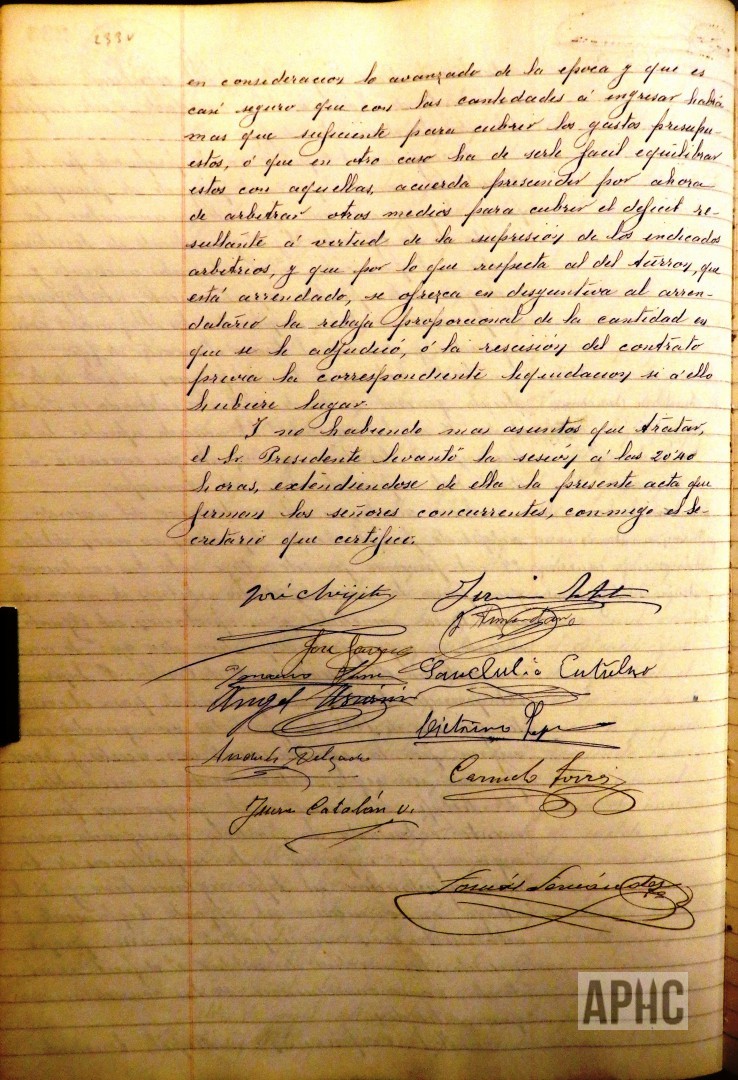 233v
en consideracion lo avanzado de la epoca y que es
casi seguro que con las cantidades á ingresar habrá
mas que suficiente para cubrir los gastos presupu-
estos, ó que en otro caso ha de serle facil equilibrar
estos con aquellas, acuerda prescindir por ahora
de arbitrar otros medios para cubrir el deficit re-
sultante á virtud de la supresión de los indicados
arbitrios, y que por lo que respecta al del turron, que
está arrendado, se ofrezca en disyuntiva al arren-
datário la rebaja proporcional de la cantidad en
que se le adjudicó, ó la rescisión del contrato
previa la correspondiente liquidacion si á ello
hubiere lugar.
Y no habiendo mas asuntos que tratar,
el Sr. Presidente levantó la sesión á las 20'40
horas, extendiendose de ella la presente acta que
firman los señores concurrentes, conmigo el Se-
cretario que certifico.
José
José
Angel
Andrés Delgado
Carmelo Torres
Juan Catalán V.
Tomás Fernández
APHC